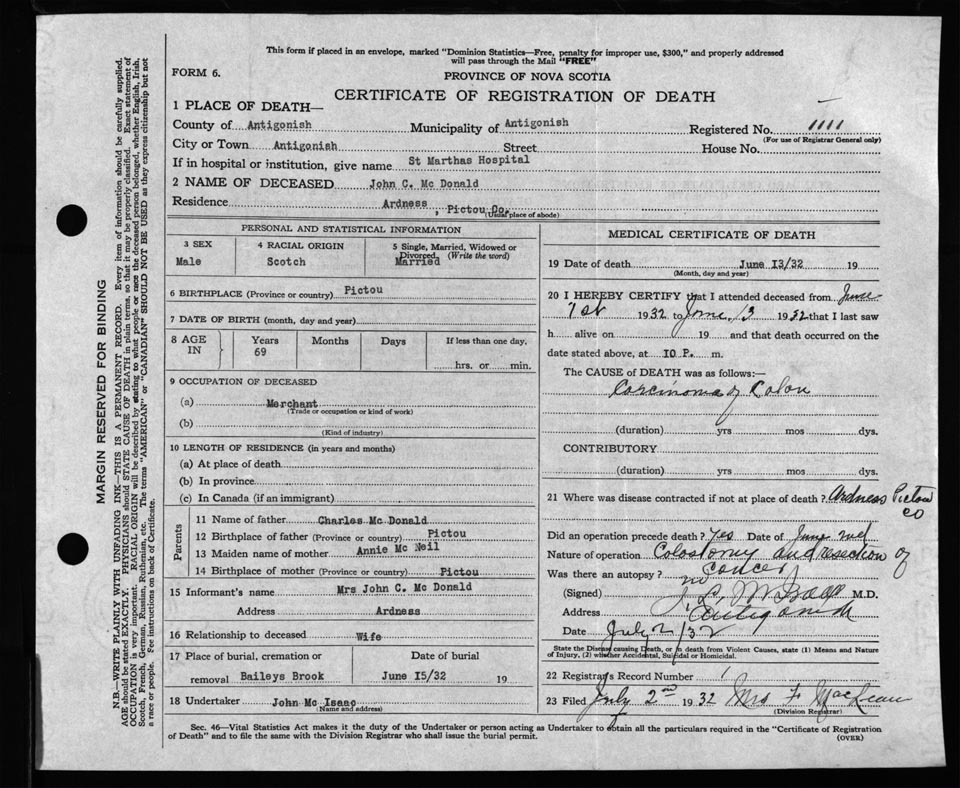 This form if placed in an envelope, marked "Dominion Statistics—Free, penalty for improper use, $300," and properly addressed
will pass through the Mail "FREE"
FORM 6.
PROVINCE OF NOVA SCOTIA
CERTIFICATE OF REGISTRATION OF DEATH
1 PLACE OF DEATH—
County of Antigonish Municipality of Antigonish Registered No. 1111
(For use of Registrar General only)
City or Town Antigonish Street House No.
If in hospital or institution, give name St Marthas Hospital
2 NAME OF DECEASED John C. Mc Donald
Residence Ardness, Pictou Co.
(Usual place of abode)
PERSONAL AND STATISTICAL INFORMATION
3 SEX
Male
4 RACIAL ORIGIN
Scotch
5 Single, Married, Widowed or
Divorced. (Write the word)
Married
6 BIRTHPLACE (Province or country) Pictou
7 DATE OF BIRTH (month, day and year)
8 AGE IN
Years Months Days If less than one day,
69
hrs. or min.
9 OCCUPATION OF DECEASED
(a) Merchant
(Trade or occupation or kind of work)
(b)
(Kind of industry)
10 LENGTH OF RESIDENCE (in years and months)
(a) At place of death
(b) In province
(c) In Canada (if an immigrant)
Parents
11 Name of father Charles Mc Donald
12 Birthplace of father (Province or country) Pictou
13 Maiden name of mother Annie Mc Neil
14 Birthplace of mother (Province or country) Pictou
15 Informant's name Mrs John C. Mc Donald
Address Ardness
16 Relationship to deceased Wife
17 Place of burial, cremation or Date of burial
removal Baileys Brook June I5/32 19
18 Undertaker John Mc Isaac
(Name and address)
MEDICAL CERTIFICATE OF DEATH
19 Date of death June I3/32 19
(Month, day and year)
20 I HEREBY CERTIFY that I attended deceased from June
1st 1932 to June 13 1932 that I last saw
h alive on 19 and that death occurred on the
date stated above, at IO P. m.
The CAUSE OF DEATH was as follows:—
Carcinoma of Colon
(duration) yrs mos dys.
CONTRIBUTORY
(duration) yrs mos dys.
21 Where was disease contracted if not at place of death? Ardness Pictou
Co
Did an operation precede death? Yes Date of June
Nature of operation Colostomy and resection of
Cancer
Was there an autopsy? no
(Signed) M.D.
Address Antigonish
Date July 2/32
State the Disease causing Death, or in death from Violent Causes, state (1) Means and Nature
of Injury, (2) whether Accidental, Suicidal or Homicidal.
22 Registrar's Record Number 1
23 Filed July 2nd 1932 Mrs F. MacLean
(Division Registrar)
Sec. 46—Vital Statistics Act makes it the duty of the Undertaker or person acting as Undertaker to obtain all the particulars required in the "Certificate of Registration
of Death" and to file the same with the Division Registrar who shall issue the burial permit.
(OVER)
MARGIN RESERVED FOR BINDING
N.B.—WRITE PLAINLY WITH UNFADING INK—THIS IS A PERMANENT RECORD. Every item of information should be carefully supplied.
AGE should be stated EXACTLY. PHYSICIANS should STATE CAUSE OF DEATH in plain terms, so that it may be properly classified. Exact statement of
OCCUPATION is very important. RACIAL ORIGIN will be described by stating to what people or race the deceased person belonged, whether English, Irish,
Scotch, French, German, Russian, Ruthenian, etc. The terms "AMERICAN" or "CANADIAN" SHOULD NOT BE USED as they express citizenship but not
a race or people. Fee instructions on back of Certificate.